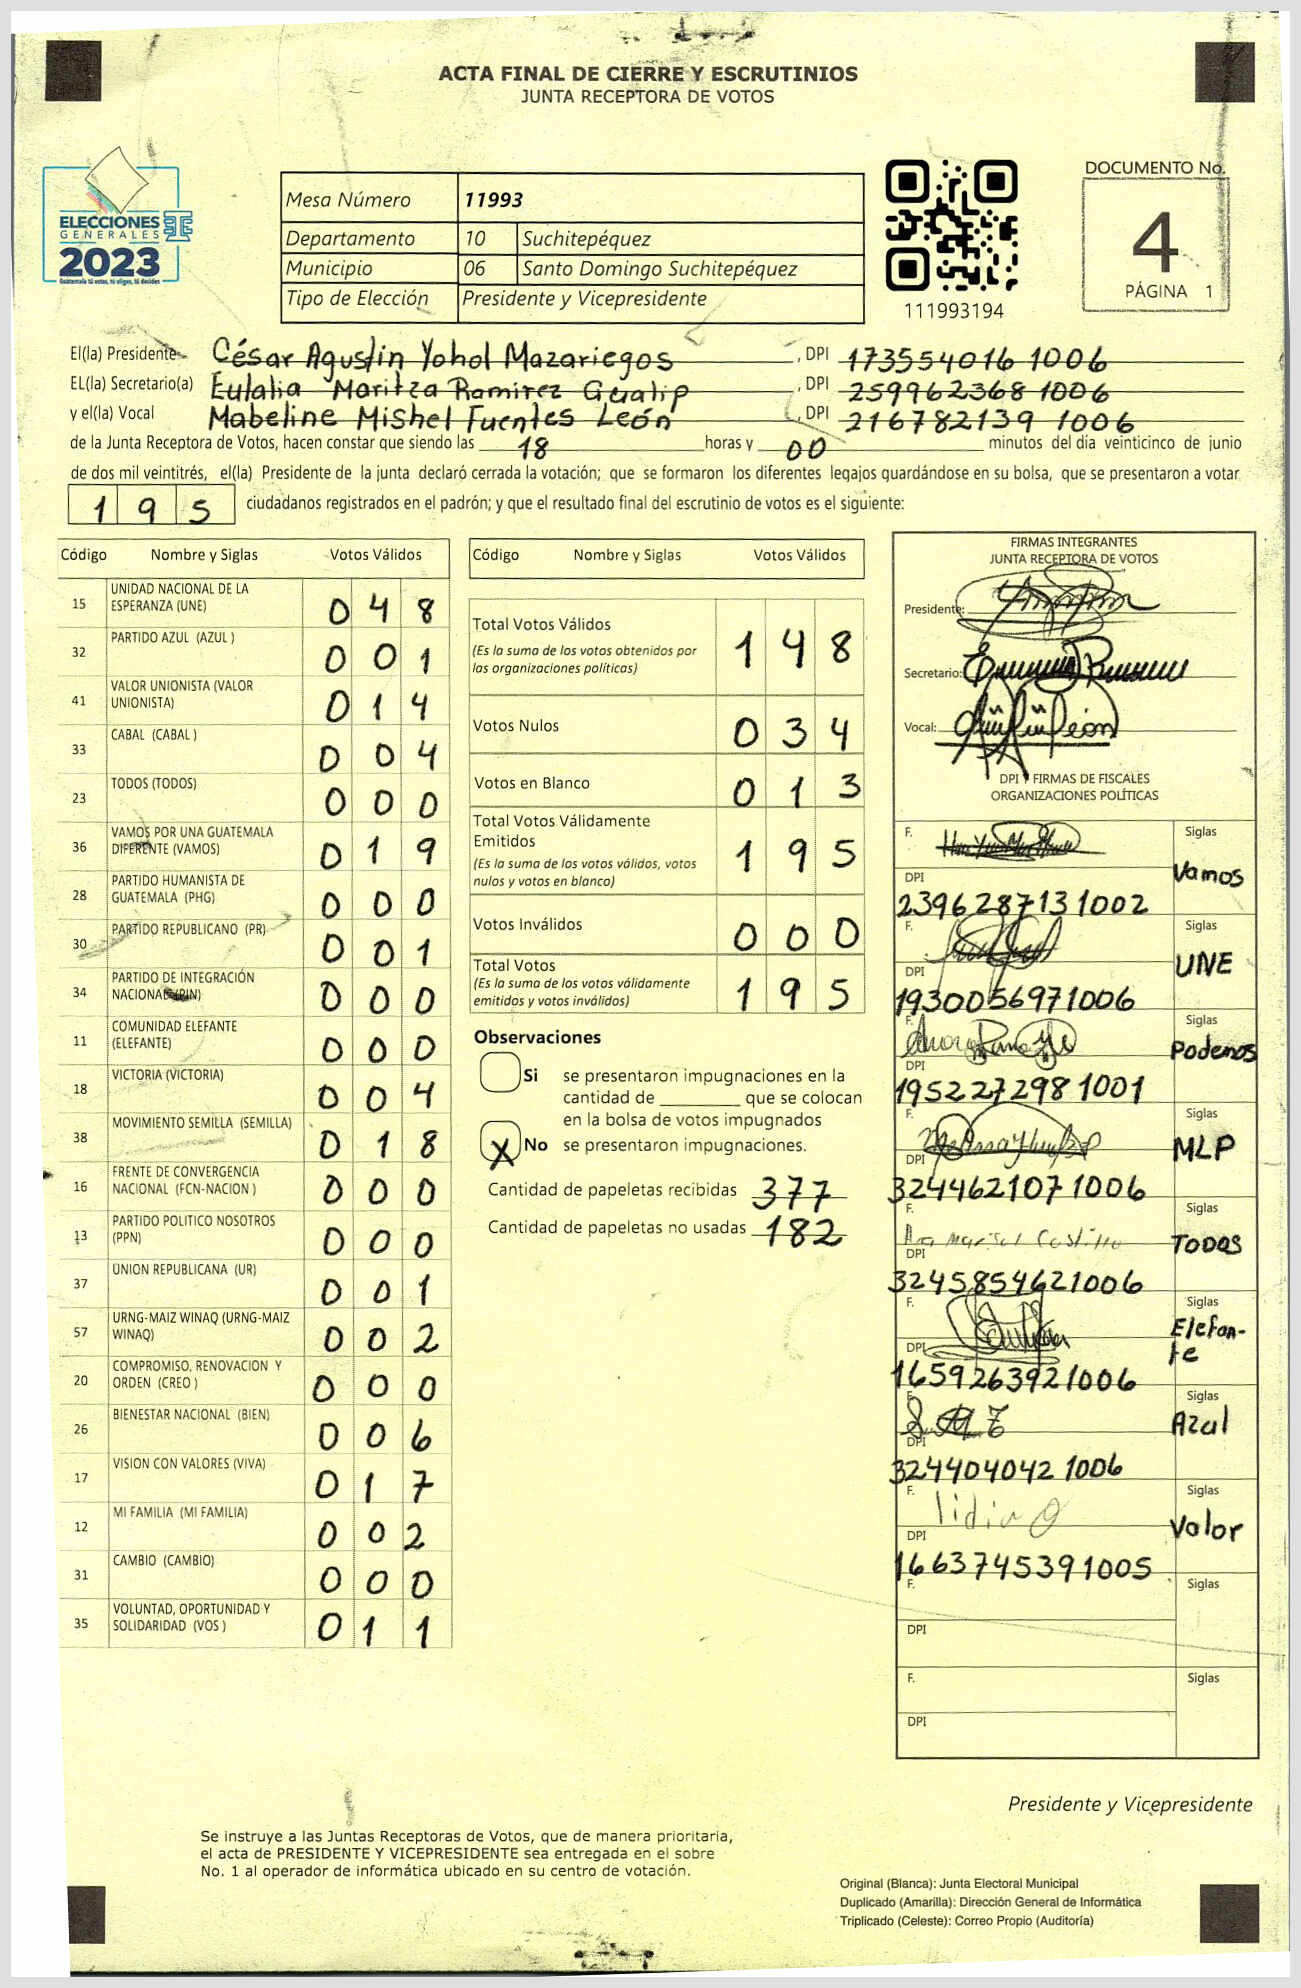 ACTA FINAL DE CIERRE Y ESCRUTINIOS
JUNTA RECEPTORA DE VOTOS
ELECCIONES
GENERALES
2023
Guatemala tú votas, tú eliges, tú decides
Mesa Número 11993
Departamento 10 Suchitepéquez
Municipio 06 Santo Domingo Suchitepéquez
Tipo de Elección Presidente y Vicepresidente
111993194
DOCUMENTO No.
4
PÁGINA 1
El(la) Presidente César Agustin Yohol Mazariegos , DPI 173554016 1006
EL(la) Secretario(a) Eulalia Maritza Ramirez Gualip , DPI 259962368 1006
y el(la) Vocal Mabeline Mishel Fuentes León , DPI 216782139 1006
de la Junta Receptora de Votos, hacen constar que siendo las 18 horas y 00 minutos del día veinticinco de junio
de dos mil veintitrés, el(la) Presidente de la junta declaró cerrada la votación; que se formaron los diferentes legajos guardándose en su bolsa, que se presentaron a votar
195 ciudadanos registrados en el padrón; y que el resultado final del escrutinio de votos es el siguiente:
Código Nombre y Siglas Votos Válidos
15 UNIDAD NACIONAL DE LA ESPERANZA (UNE) 048
32 PARTIDO AZUL (AZUL ) 001
41 VALOR UNIONISTA (VALOR UNIONISTA) 014
33 CABAL (CABAL ) 004
23 TODOS (TODOS) 000
36 VAMOS POR UNA GUATEMALA DIFERENTE (VAMOS) 019
28 PARTIDO HUMANISTA DE GUATEMALA (PHG) 000
30 PARTIDO REPUBLICANO (PR) 001
34 PARTIDO DE INTEGRACIÓN NACIONAL (PIN) 000
11 COMUNIDAD ELEFANTE (ELEFANTE) 000
18 VICTORIA (VICTORIA) 004
38 MOVIMIENTO SEMILLA (SEMILLA) 018
16 FRENTE DE CONVERGENCIA NACIONAL (FCN-NACION ) 000
13 PARTIDO POLITICO NOSOTROS (PPN) 000
37 UNION REPUBLICANA (UR) 001
57 URNG-MAIZ WINAQ (URNG-MAIZ WINAQ) 002
20 COMPROMISO, RENOVACION Y ORDEN (CREO ) 000
26 BIENESTAR NACIONAL (BIEN) 006
17 VISION CON VALORES (VIVA) 017
12 MI FAMILIA (MI FAMILIA) 002
31 CAMBIO (CAMBIO) 000
35 VOLUNTAD, OPORTUNIDAD Y SOLIDARIDAD (VOS ) 011
Código Nombre y Siglas Votos Válidos
Total Votos Válidos 148
(Es la suma de los votos obtenidos por
las organizaciones políticas)
Votos Nulos 034
Votos en Blanco 013
Total Votos Válidamente
Emitidos 195
(Es la suma de los votos válidos, votos
nulos y votos en blanco)
Votos Inválidos 000
Total Votos 195
(Es la suma de los votos válidamente
emitidos y votos inválidos)
Observaciones
Si se presentaron impugnaciones en la
cantidad de ________ que se colocan
en la bolsa de votos impugnados
X No se presentaron impugnaciones.
Cantidad de papeletas recibidas 377
Cantidad de papeletas no usadas 182
FIRMAS INTEGRANTES
JUNTA RECEPTORA DE VOTOS
Presidente:
Secretario:
Vocal:
DPI Y FIRMAS DE FISCALES
ORGANIZACIONES POLÍTICAS
F. Siglas Vamos
DPI 2396287131002
F. Siglas UNE
DPI 1930056971006
F. Siglas Podemos
DPI 1952272981001
F. Siglas MLP
DPI 324462107 1006
F. Ana Marisol Castillo Siglas TODOS
DPI 3245854621006
F. Siglas Elefan-
te
DPI 1659263921006
F. Siglas Azul
DPI 324404042 1006
F. Siglas Valor
DPI 1663745391005
F. Siglas
DPI
F. Siglas
DPI
Presidente y Vicepresidente
Se instruye a las Juntas Receptoras de Votos, que de manera prioritaria,
el acta de PRESIDENTE Y VICEPRESIDENTE sea entregada en el sobre
No. 1 al operador de informática ubicado en su centro de votación.
Original (Blanca): Junta Electoral Municipal
Duplicado (Amarilla): Dirección General de Informática
Triplicado (Celeste): Correo Propio (Auditoría)